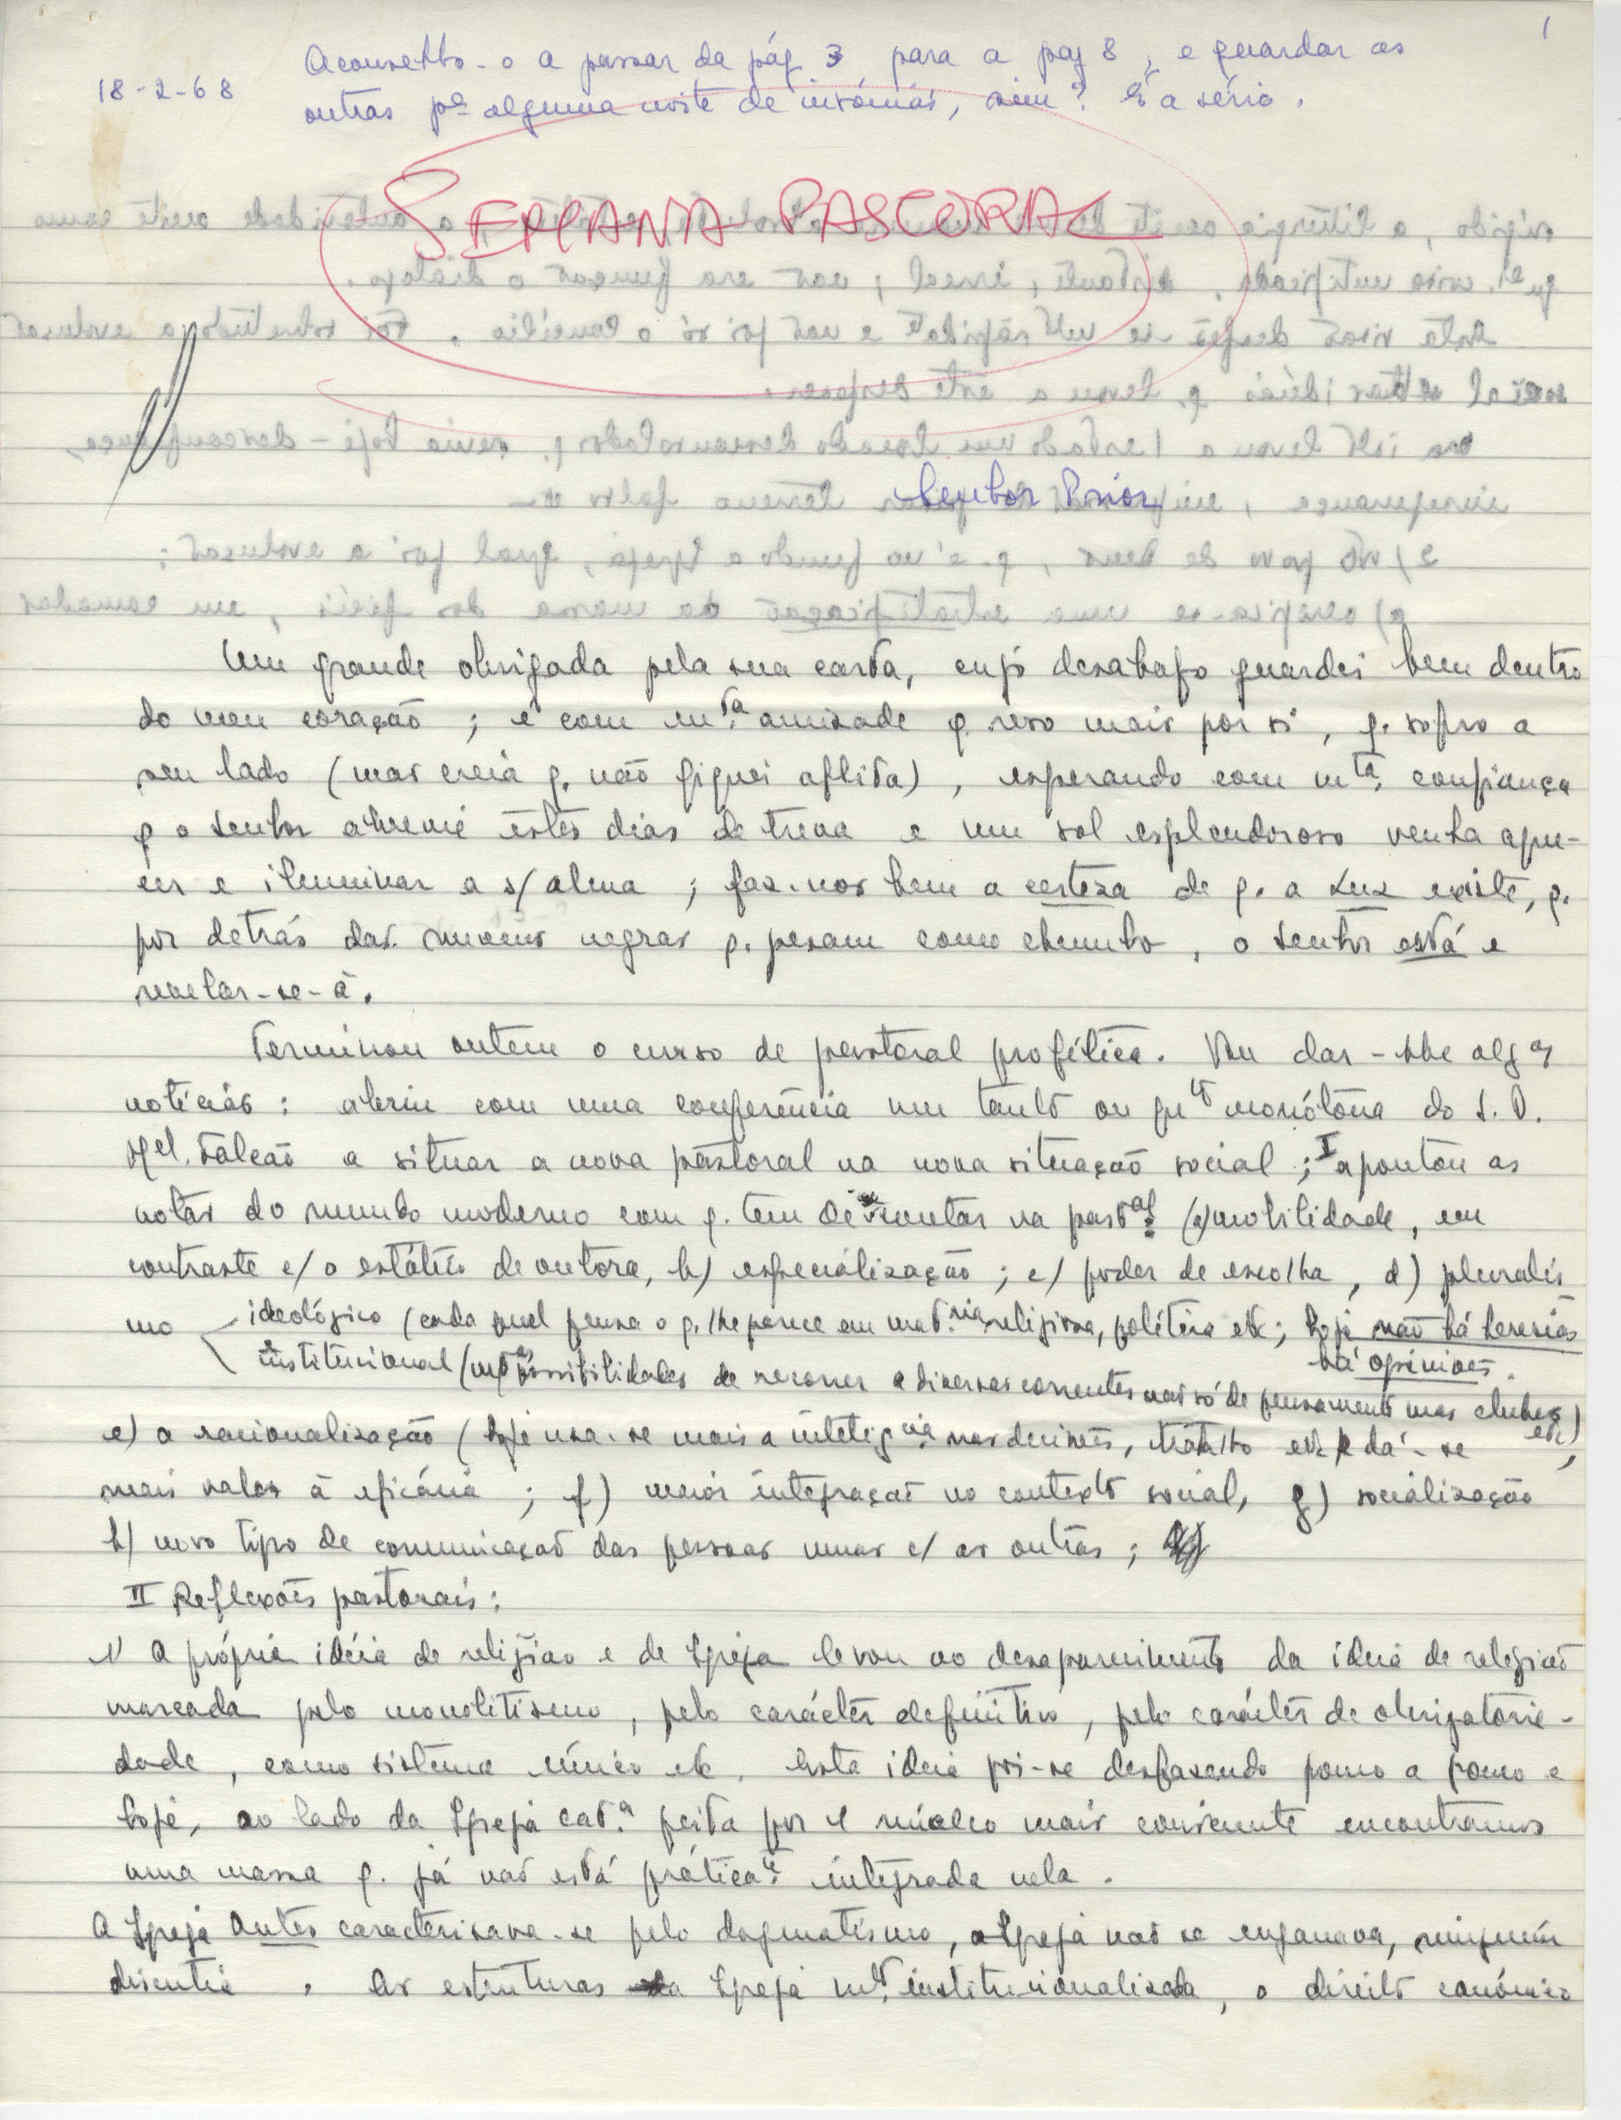 1
Aconselho-o a passar da pág 3 para a pág 8, e guardar as
18-2-68
outras pª alguma noite de insónias, sim? É a sério.
SEMANA PASTORAL
Senhor Prior
Um grande obrigada pela sua carta, cujo desabafo guardei bem dentro
do meu coração; é com mtª amizade q. rezo mais por si, q. sofro a
seu lado (mas creia q. não fiquei aflita), esperando com mtª confiança
q o Senhor abrevie êstes dias de treva e um sol esplendoroso venha aque-
cer e iluminar a s/ alma; faz-nos bem a certeza de q. a Luz existe, q.
por detrás das nuvens negras q. pesam como chumbo, o Senhor está e
revelar-se-á.
Terminou ontem o curso de pastoral profética. Vou dar-lhe algas
notícias: abriu com uma conferência um tanto ou qto monótona do S. D.
Mel. Falcão a situar a nova pastoral na nova situação social; I apontou as
notas do mundo moderno com q. tem de contar na pastal: (a) mobilidade, em
contraste c/ o estático de outora, b) especialização; c) poder de escolha, d) pluralis
mo ideológico (cada qual pensa o q. lhe parece em matria religiosa, política etc; hoje não há heresias
há opiniões.
institucional (mtas possibilidades de recorrer a diversas correntes não só de pensamento mas clubes
etc)
e) a racionalização (hoje usa-se mais a inteligcia nas decisões, trabalho etc dá-se
mais valor à eficácia; f) maior integração no contexto social, g) socialização
h) novo tipo de comunicação das pessoas umas c/ as outras;
II Reflexões pastorais:
1) A própria idéia de religião e de Igreja levou ao desaparecimento da ideia de religião
marcada pelo monolitismo, pelo carácter definitivo, pelo carácter de obrigatorie-
dade, como sistema único etc. Esta ideia foi-se desfazendo pouco a pouco e
hoje, ao lado da Igreja catª feita por 1 núcleo mais consciente encontramos
uma massa q. já não está práticate integrada nela.
A Igreja antes caracterizava-se pelo dogmatismo, a Igreja não se enganava, ninguém
discutia. As estruturas da Igreja mto institucionalizada, o direito canónico